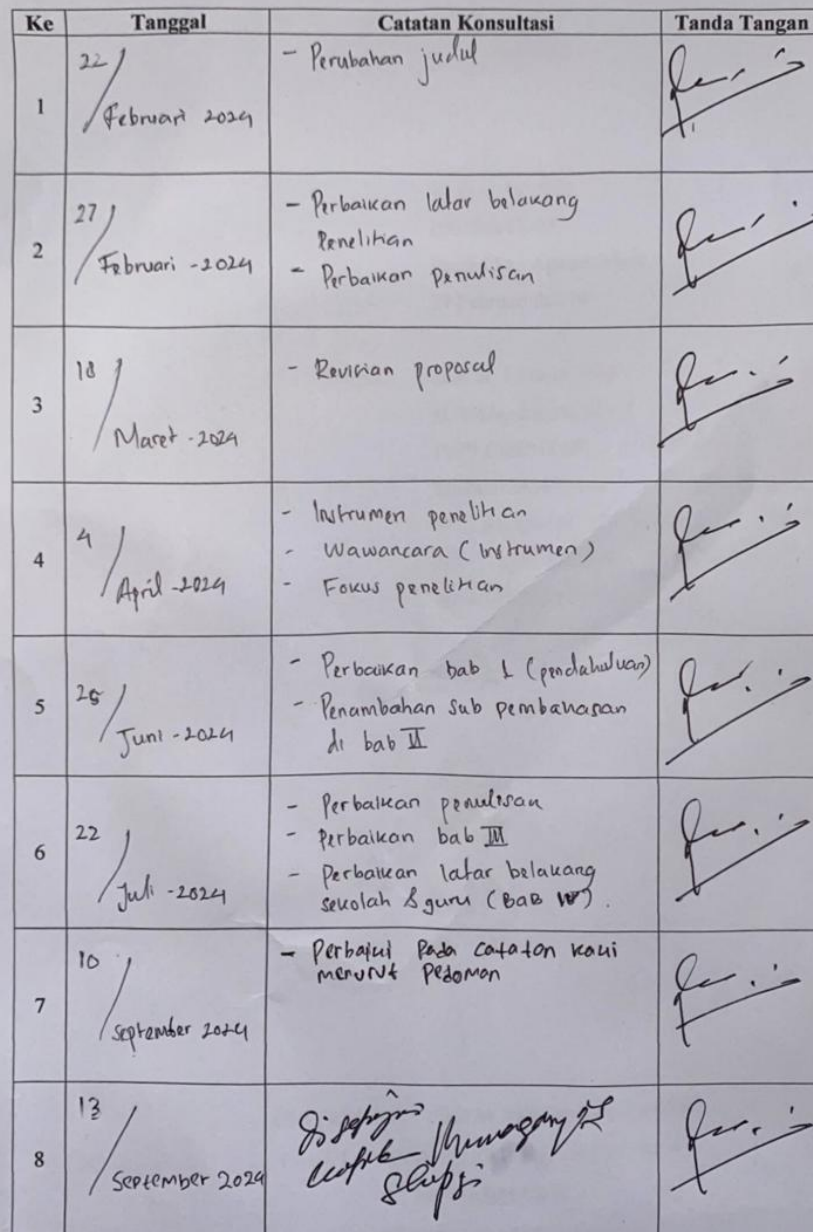 Ke Tanggal Catatan Konsultasi Tanda Tangan
1
22/
Februari 2024
- Perubahan judul
2
27/
Februari - 2024
- Perbaikan latar belakang
Penelitian
- Perbaikan penulisan
3
18/
Maret - 2024
- Revisian proposal
4
4/
April - 2024
- Instrumen penelitian
- Wawancara (Instrumen)
- Fokus penelitian
5
/
Juni - 2024
- Perbaikan bab I (pendahuluan)
- Penambahan sub pembahasan
di bab II
6
22/
Juli - 2024
- Perbaikan penulisan
- Perbaikan bab III
- Perbaikan latar belakang
sekolah & guru (BAB IV).
7
10/
September 2024
- Perbaiki Pada catatan kaki
menurut Pedoman
8
13/
September 2024
Disetujui
untuk